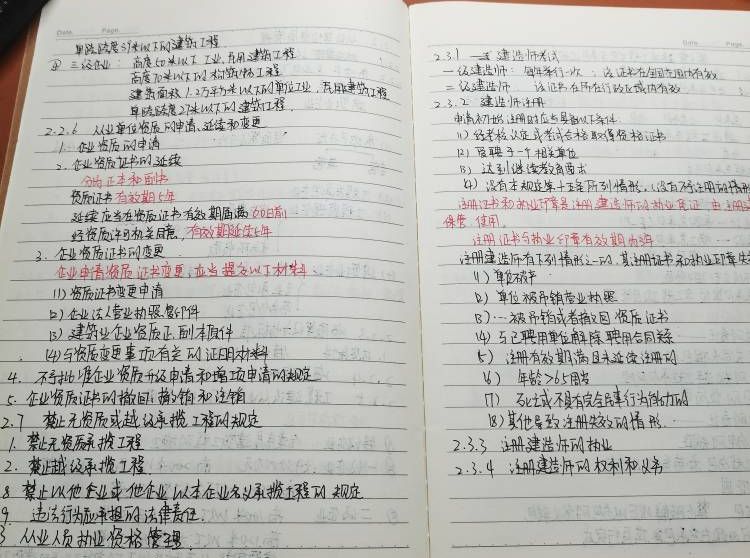 Date. Page.
单跨跨度39米以下的建筑工程
④ 三级企业: 高度50米以下工业、民用建筑工程
高度70米以下的构筑物工程
建筑面积1.2万平方米以下的单位工业、民用建筑工程
单跨跨度27米以下的建筑工程.
2.2.6 从业单位资质的申请、延续和变更
1. 企业资质的申请
2. 企业资质证书的延续
分为正本和副本
资质证书有效期5年
延续应当在资质证书有效期届满60日前
经资质许可机关同意,有效期延续5年
3. 企业资质证书的变更.
企业申请资质证书变更,应当提交以下材料.
(1) 资质证书变更申请
(2) 企业法人营业执照复印件
(3) 建筑业企业资质正、副本原件
(4) 与资质变更事项有关的证明材料
4. 不予批准企业资质升级申请和增项申请的规定
5. 企业资质证书的撤回、撤销和注销
2.7 禁止无资质或越级承揽工程的规定
1. 禁止无资质承揽工程
2. 禁止越级承揽工程
8 禁止以他企业或他企业以本企业名义承揽工程的规定
9. 违法行为应承担的法律责任.
3 从业人员执业资格管理.
Date. Page.
2.3.1 一、二建造师考试
一级建造师: 每年举行一次; 该证书在全国范围内有效
二级建造师 该证书在所在行政区域内有效
2.3.2 建造师注册
申请初始注册时应当具备以下条件:
(1) 经考核认定或考试合格取得资格证书
(2) 受聘于一个相关单位
(3) 达到继续教育要求
(4) 没有本规定第十五条所列情形.(没有不予注册的情形
注册证书和执业印章是注册建造师的执业凭证,由注册
保管、使用.
注册证书与执业印章有效期为3年
注册建造师有下列情形之一的,其注册证书和执业印章失
(1) 单位破产
(2) 单位被吊销营业执照
(3) …被吊销或者撤回资质证书
(4) 与已聘用单位解除聘用合同关系
(5) 注册有效期满且未延续注册的
(6) 年龄>65周岁
(7) 死亡或不具有完全民事行为能力的
(8) 其他导致注册失效的情形.
2.3.3 注册建造师的执业
2.3.4 注册建造师的权利和义务